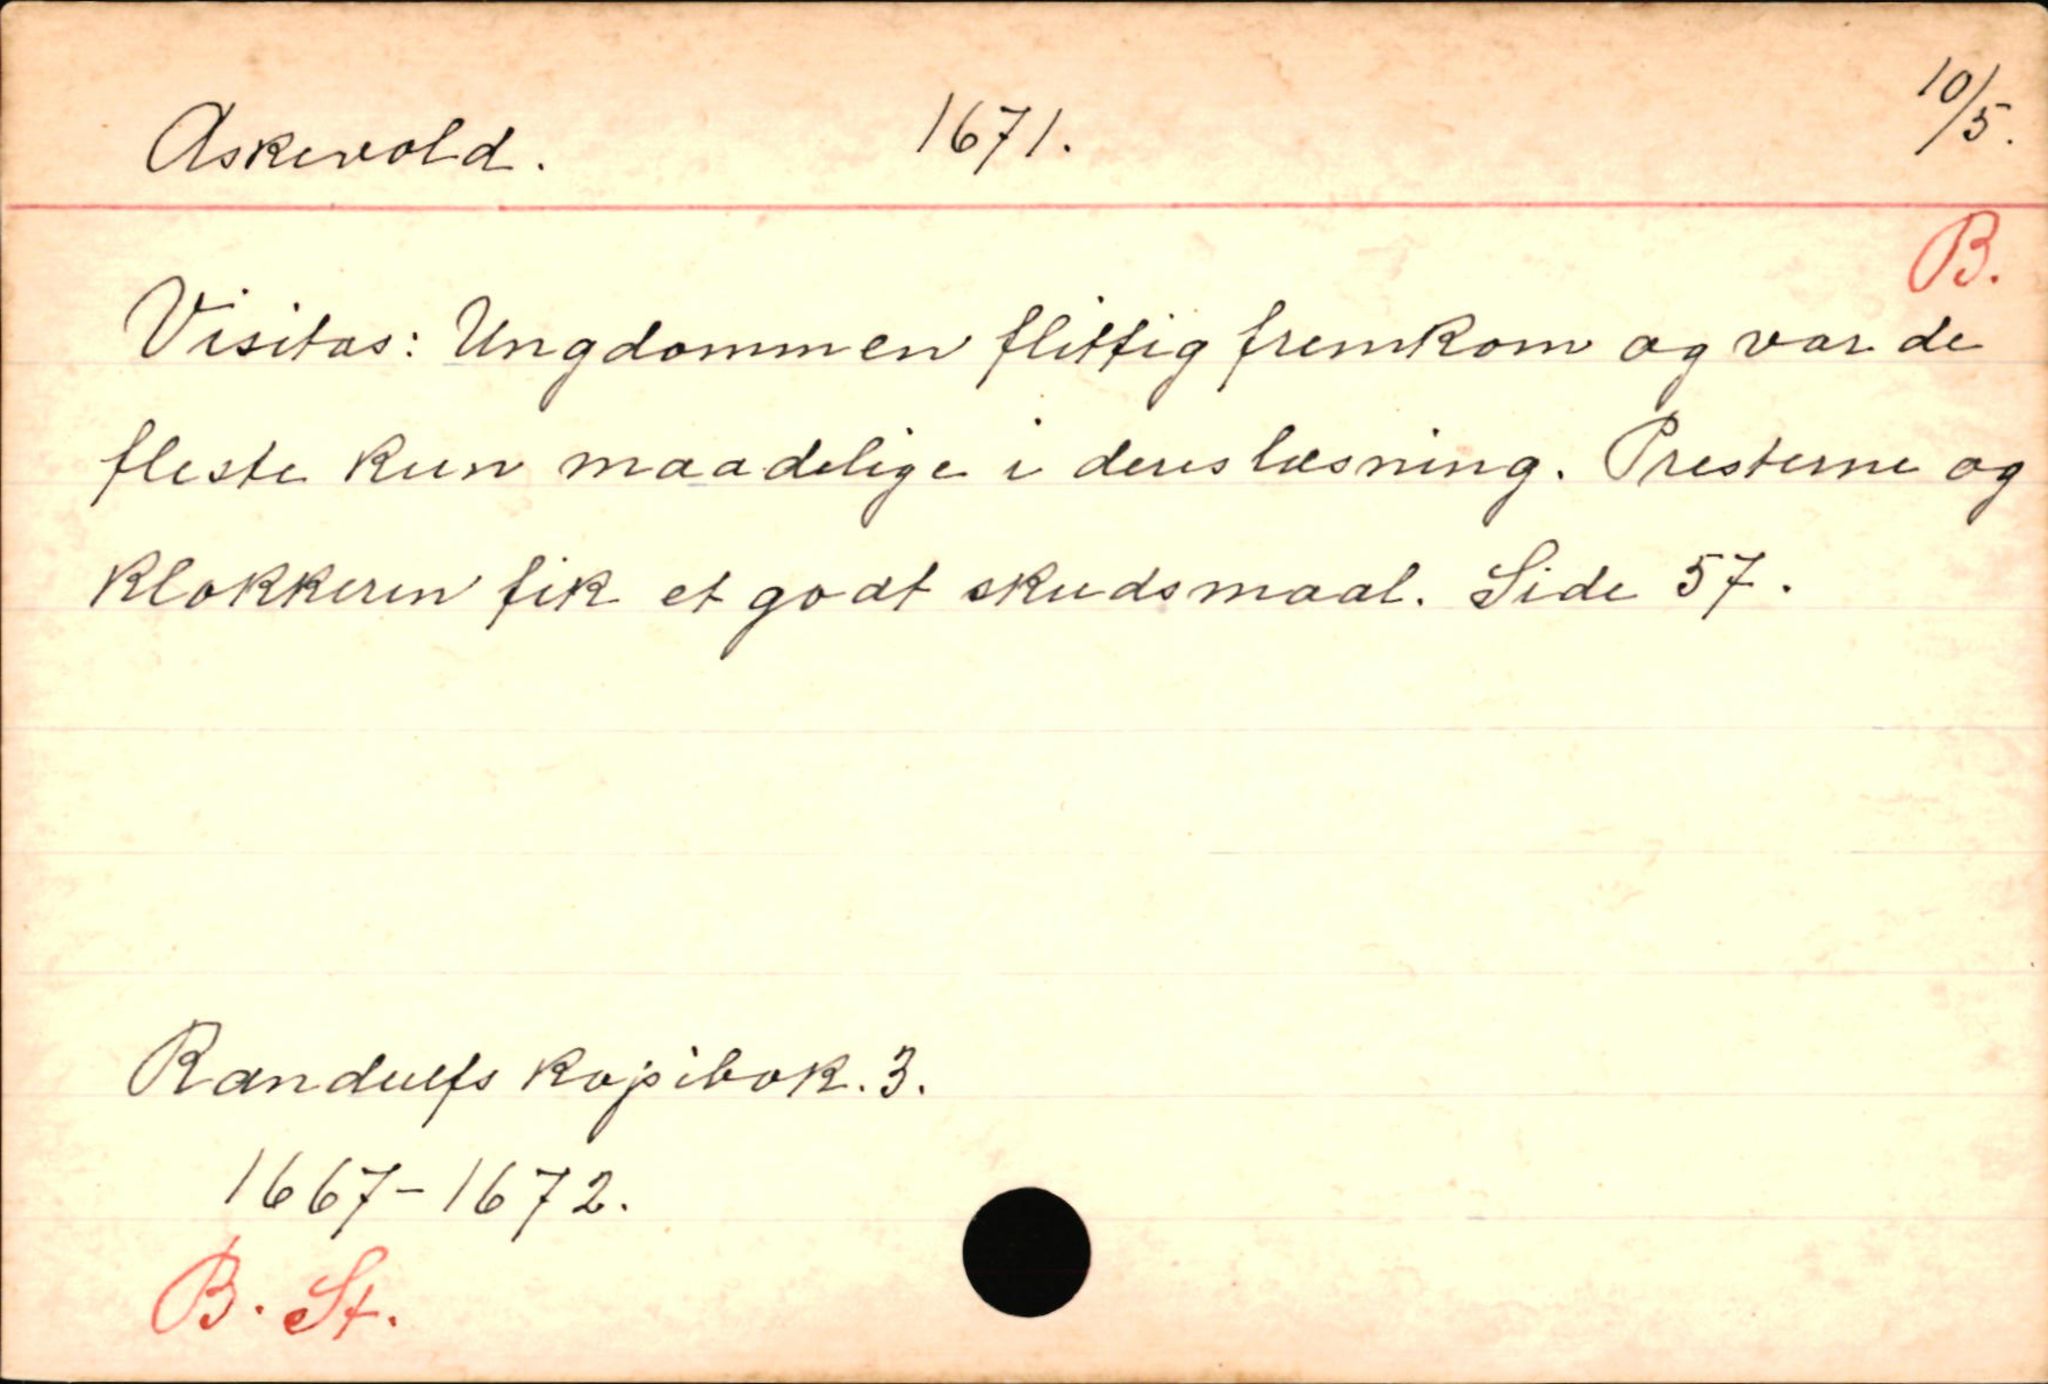 Askevold. 1671. 10/5.
B.
Visitas: Ungdommen flittig fremkom og var de
fleste kun maadelige i deres læsning. Presterne og
klokkeren fik et godt skudsmaal. Side 57.
Randulfs kopibok. 3.
1667-1672.
B. St.